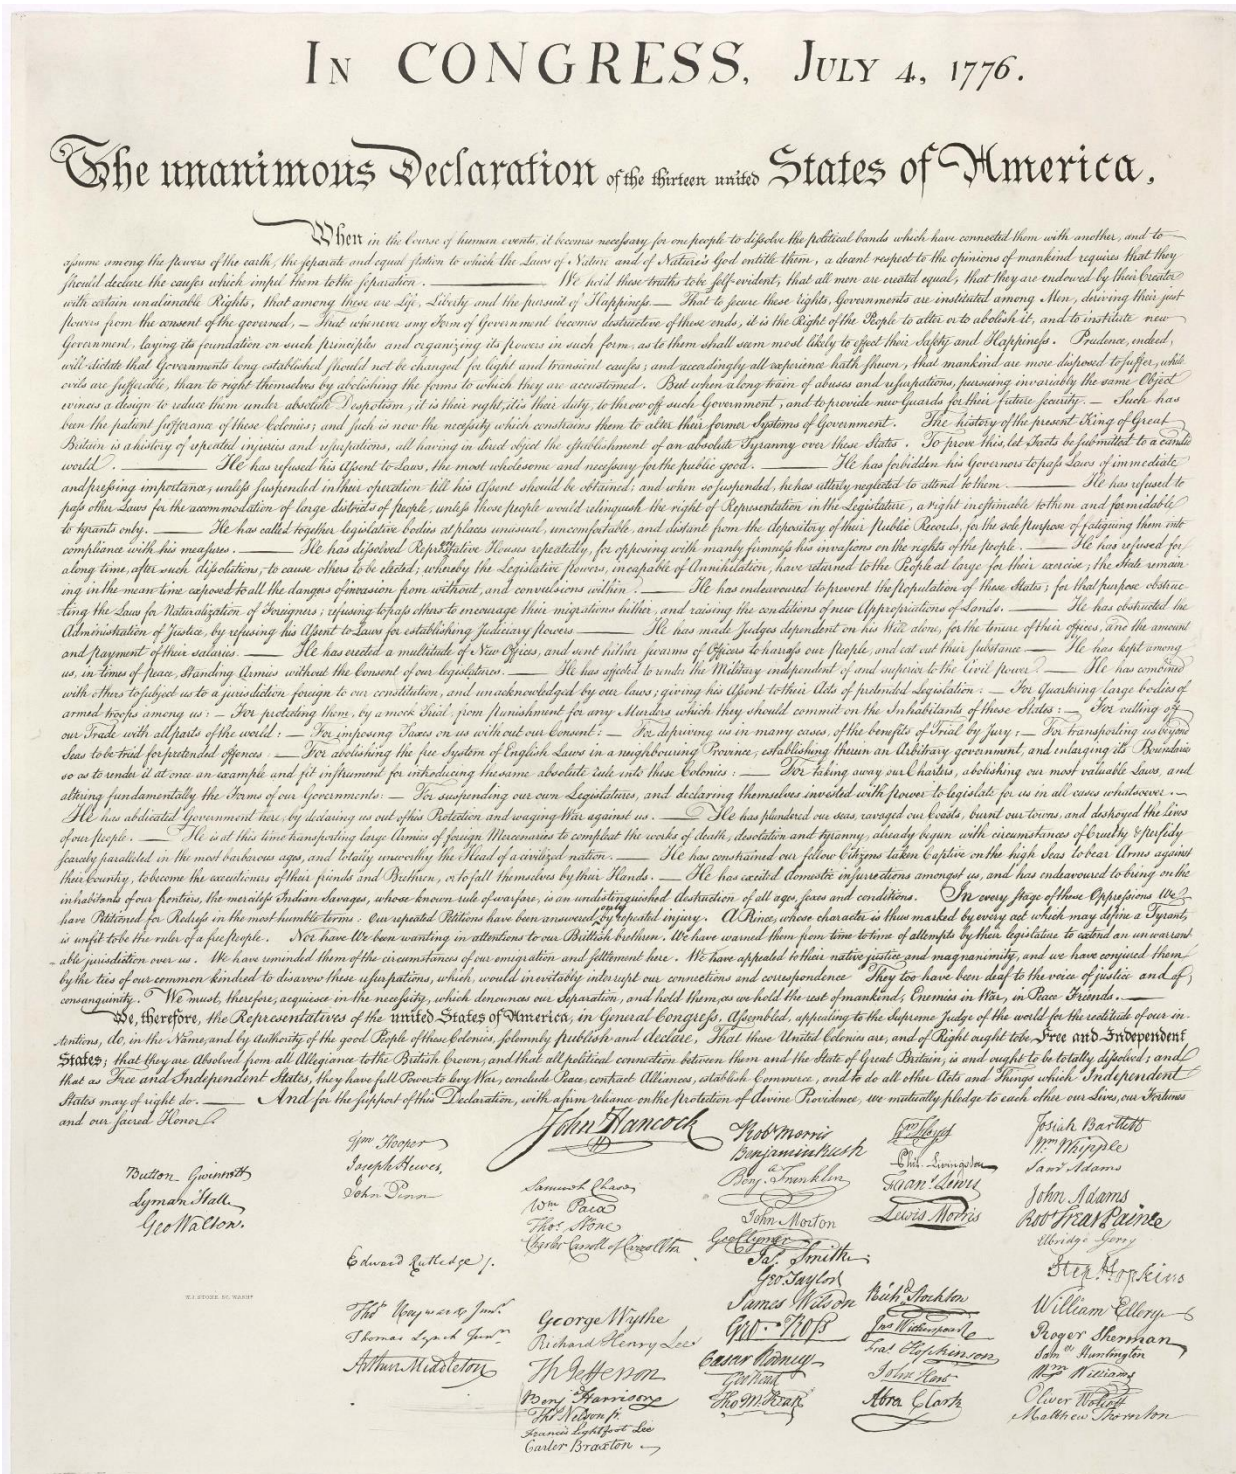 In CONGRESS, July 4, 1776.
The unanimous Declaration of the thirteen united States of America,
When in the Course of human events, it becomes necessary for one people to dissolve the political bands which have connected them with another, and to
assume among the powers of the earth, the separate and equal station to which the Laws of Nature and of Nature's God entitle them, a decent respect to the opinions of mankind requires that they
should declare the causes which impel them to the separation. — We hold these truths to be self-evident, that all men are created equal, that they are endowed by their Creator
with certain unalienable Rights, that among these are Life, Liberty and the pursuit of Happiness. — That to secure these rights, Governments are instituted among Men, deriving their just
powers from the consent of the governed, — That whenever any Form of Government becomes destructive of these ends, it is the Right of the People to alter or to abolish it, and to institute new
Government, laying its foundation on such principles and organizing its powers in such form, as to them shall seem most likely to effect their Safety and Happiness. Prudence, indeed,
will dictate that Governments long established should not be changed for light and transient causes; and accordingly all experience hath shewn, that mankind are more disposed to suffer, while
evils are sufferable, than to right themselves by abolishing the forms to which they are accustomed. But when a long train of abuses and usurpations, pursuing invariably the same Object
evinces a design to reduce them under absolute Despotism, it is their right, it is their duty, to throw off such Government, and to provide new Guards for their future security. — Such has
been the patient sufferance of these Colonies; and such is now the necessity which constrains them to alter their former Systems of Government. The history of the present King of Great
Britain is a history of repeated injuries and usurpations, all having in direct object the establishment of an absolute Tyranny over these States. To prove this, let Facts be submitted to a candid
world. — He has refused his Assent to Laws, the most wholesome and necessary for the public good. — He has forbidden his Governors to pass Laws of immediate
and pressing importance, unless suspended in their operation till his Assent should be obtained; and when so suspended, he has utterly neglected to attend to them. — He has refused to
pass other Laws for the accommodation of large districts of people, unless those people would relinquish the right of Representation in the Legislature, a right inestimable to them and formidable
to tyrants only. — He has called together legislative bodies at places unusual, uncomfortable, and distant from the depository of their Public Records, for the sole purpose of fatiguing them into
compliance with his measures. — He has dissolved Representative Houses repeatedly, for opposing with manly firmness his invasions on the rights of the people. — He has refused for
a long time, after such dissolutions, to cause others to be elected; whereby the Legislative powers, incapable of Annihilation, have returned to the People at large for their exercise; the State remain-
ing in the mean time exposed to all the dangers of invasion from without, and convulsions within. — He has endeavoured to prevent the population of these States; for that purpose obstruc-
ting the Laws for Naturalization of Foreigners; refusing to pass others to encourage their migrations hither, and raising the conditions of new Appropriations of Lands. — He has obstructed the
Administration of Justice, by refusing his Assent to Laws for establishing Judiciary powers — He has made Judges dependent on his Will alone, for the tenure of their offices, and the amount
and payment of their salaries. — He has erected a multitude of New Offices, and sent hither swarms of Officers to harrass our people, and eat out their substance — He has kept among
us, in times of peace, Standing Armies without the Consent of our legislatures. — He has affected to render the Military independent of and superior to the Civil power. — He has combined
with others to subject us to a jurisdiction foreign to our constitution, and unacknowledged by our laws; giving his Assent to their Acts of pretended Legislation: — For Quartering large bodies of
armed troops among us: — For protecting them, by a mock Trial, from punishment for any Murders which they should commit on the Inhabitants of these States: — For cutting off
our Trade with all parts of the world: — For imposing Taxes on us without our Consent: — For depriving us in many cases, of the benefits of Trial by Jury: — For transporting us beyond
Seas to be tried for pretended offences — For abolishing the free System of English Laws in a neighbouring Province, establishing therein an Arbitrary government, and enlarging its Boundaries
so as to render it at once an example and fit instrument for introducing the same absolute rule into these Colonies: — For taking away our Charters, abolishing our most valuable Laws, and
altering fundamentally the Forms of our Governments: — For suspending our own Legislatures, and declaring themselves invested with power to legislate for us in all cases whatsoever. —
He has abdicated Government here, by declaring us out of his Protection and waging War against us. — He has plundered our seas, ravaged our Coasts, burnt our towns, and destroyed the Lives
of our people. — He is at this time transporting large Armies of foreign Mercenaries to compleat the works of death, desolation and tyranny, already begun with circumstances of Cruelty & perfidy
scarcely paralleled in the most barbarous ages, and totally unworthy the Head of a civilized nation. — He has constrained our fellow Citizens taken Captive on the high Seas to bear Arms against
their Country, to become the executioners of their friends and Brethren, or to fall themselves by their Hands. — He has excited domestic insurrections amongst us, and has endeavoured to bring on the
inhabitants of our frontiers, the merciless Indian Savages, whose known rule of warfare, is an undistinguished destruction of all ages, sexes and conditions. In every stage of these Oppressions We
have Petitioned for Redress in the most humble terms: Our repeated Petitions have been answered only by repeated injury. A Prince, whose character is thus marked by every act which may define a Tyrant,
is unfit to be the ruler of a free people. Nor have We been wanting in attentions to our Brittish brethren. We have warned them from time to time of attempts by their legislature to extend an unwarrant-
able jurisdiction over us. We have reminded them of the circumstances of our emigration and settlement here. We have appealed to their native justice and magnanimity, and we have conjured them
by the ties of our common kindred to disavow these usurpations, which, would inevitably interrupt our connections and correspondence They too have been deaf to the voice of justice and of
consanguinity. We must, therefore, acquiesce in the necessity, which denounces our Separation, and hold them, as we hold the rest of mankind, Enemies in War, in Peace Friends. —
We, therefore, the Representatives of the united States of America, in General Congress, Assembled, appealing to the Supreme Judge of the world for the rectitude of our in-
tentions, do, in the Name, and by Authority of the good People of these Colonies, solemnly publish and declare, That these United Colonies are, and of Right ought to be Free and Independent
States; that they are Absolved from all Allegiance to the British Crown, and that all political connection between them and the State of Great Britain, is and ought to be totally dissolved; and
that as Free and Independent States, they have full Power to levy War, conclude Peace, contract Alliances, establish Commerce, and to do all other Acts and Things which Independent
States may of right do. — And for the support of this Declaration, with a firm reliance on the protection of divine Providence, we mutually pledge to each other our Lives, our Fortunes
and our sacred Honor.
Button Gwinnett
Lyman Hall
Geo Walton.
W.J. STONE SC. WASHN
Wm Hooper
Joseph Hewes,
John Penn
Edward Rutledge /.
Thos Heyward Junr.
Thomas Lynch Junr.
Arthur Middleton
John Hancock
Samuel Chase
Wm Paca
Thos Stone
Charles Carroll of Carrollton
George Wythe
Richard Henry Lee
Th Jefferson
Benj Harrison
Thos Nelson jr.
Francis Lightfoot Lee
Carter Braxton
Robt Morris
Benjamin Rush
Benja Franklin
John Morton
Geo Clymer
Jas. Smith
Geo. Taylor
James Wilson
Geo. Ross
Caesar Rodney
Geo Read
Tho M:Kean
Wm Floyd
Phil. Livingston
Frans. Lewis
Lewis Morris
Richd. Stockton
Jno Witherspoon
Fras. Hopkinson
John Hart
Abra Clark
Josiah Bartlett
Wm. Whipple
Saml Adams
John Adams
Robt Treat Paine
Elbridge Gerry
Step. Hopkins
William Ellery
Roger Sherman
Saml Huntington
Wm Williams
Oliver Wolcott
Matthew Thornton